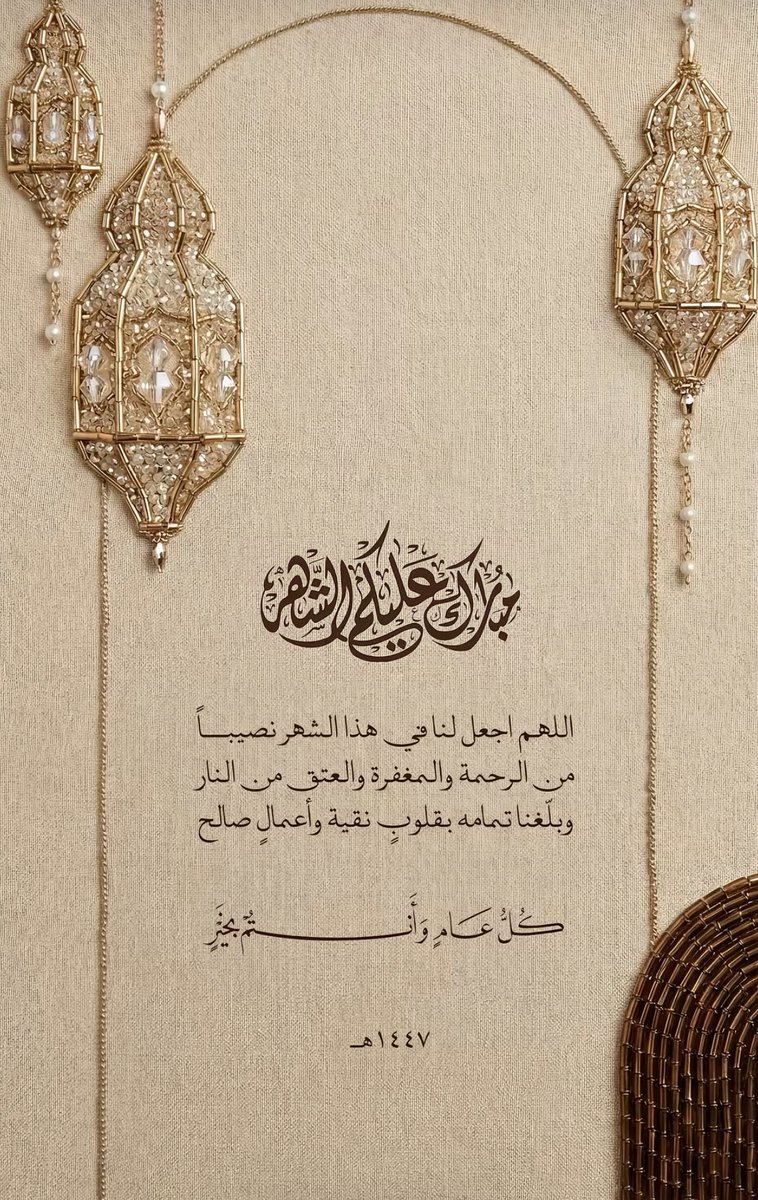 مبارك عليكم الشهر
اللهم اجعل لنا في هذا الشهر نصيباً
من الرحمة والمغفرة والعتق من النار
وبلّغنا تمامه بقلوبٍ نقية وأعمالٍ صالح
كُلُّ عَامٍ وَأَنتُمْ بِخَيْرٍ
١٤٤٧هـ